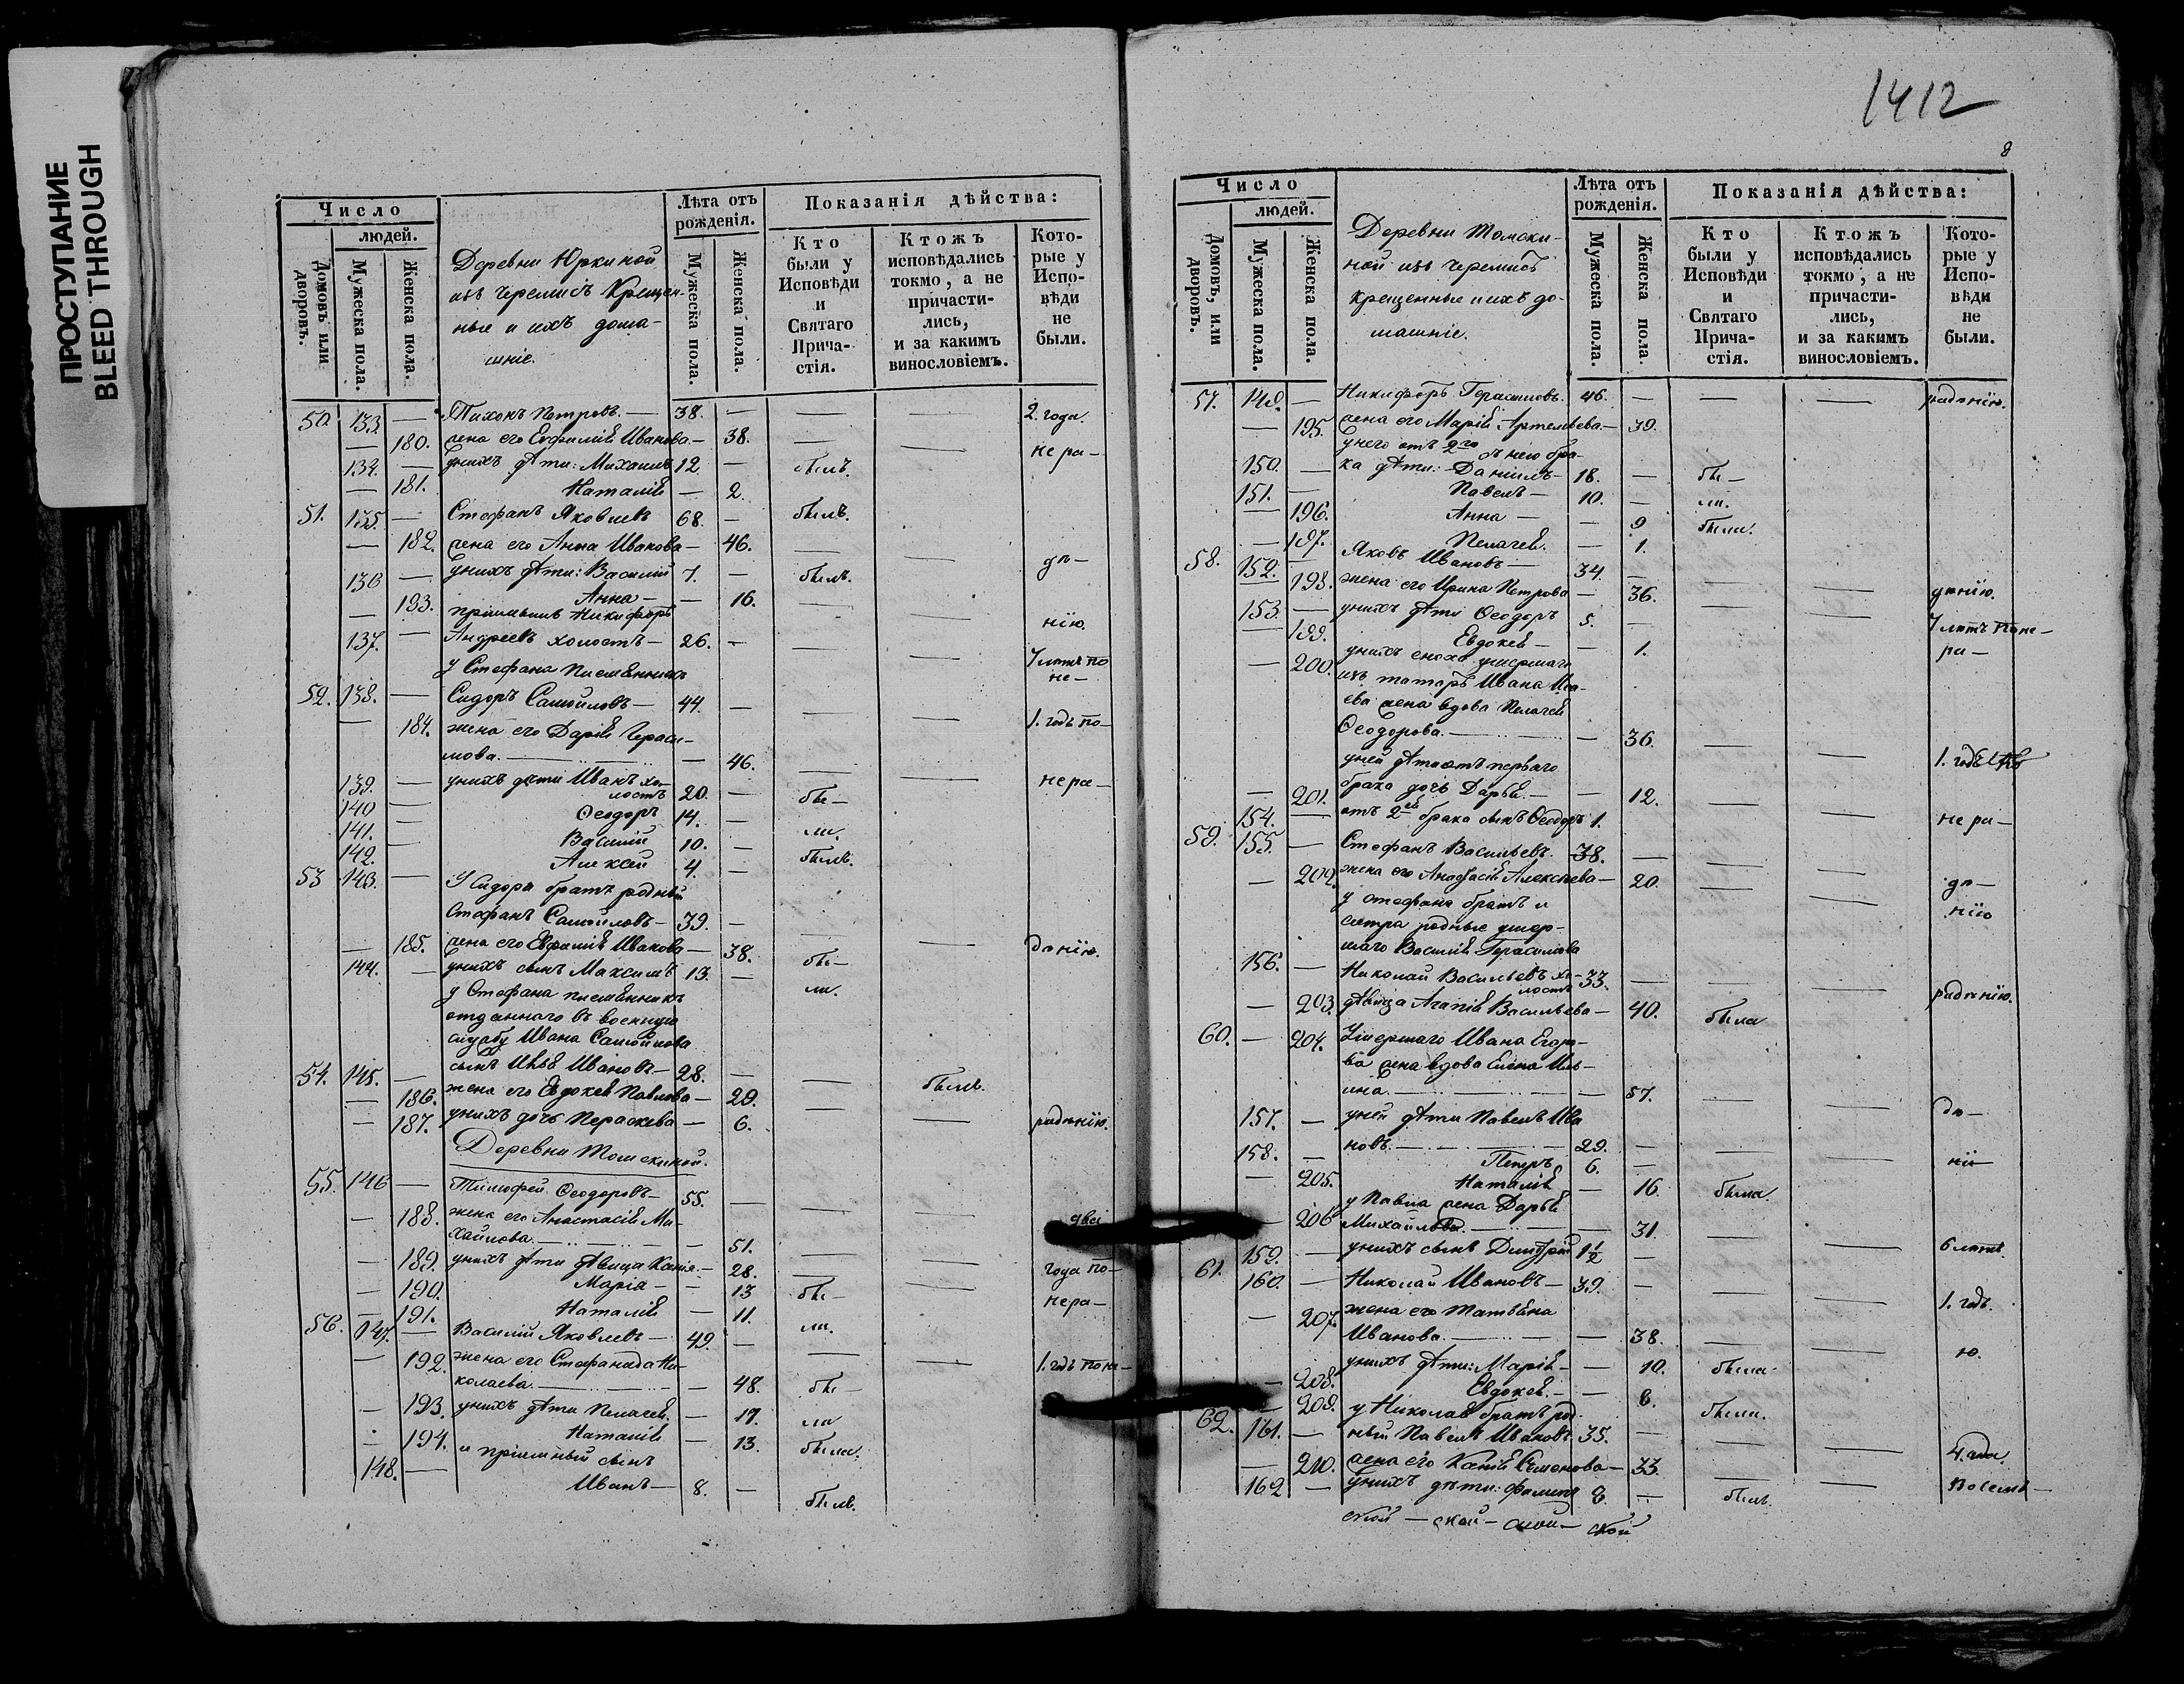 ПРОСТУПАНИЕ
BLEED THROUGH
Число
людей.
Домовъ или дворовъ.
Мужеска пола.
Женска пола.
Деревни Юркиной
изъ черемисъ крещен-
ные и ихъ дома-
шніе.
Лѣта отъ рожденія.
Мужеска пола.
Женска пола.
Показанія дѣйства:
Кто были у Исповѣди и Святаго Прича-стія.
Ктожъ исповѣдались токмо, а не причасти-лись, и за какимъ винословіемъ.
Кото-рые у Испо-вѣди не были.
50 133 — Тихонъ Петровъ — 38. — 2. года
— 180. жена его Евфимія Иванова — 38. —
134. — у нихъ дѣти: Михаилъ 12 — былъ. — не ра-
— 181. Наталія — 2.
51. 135 — Стефанъ Яковлевъ 68. — былъ.
— 182. жена его Анна Иванова — 46. —
136 — у нихъ дѣти: Василій 7. — былъ. — дѣ-
— 183. Анна — 16. —
пріимышъ Никифоръ
137. — Андреевъ холостъ — 26. — нію.
у Стефана племянникъ
52. 138. — Сидоръ Самойловъ — 44. — 7 лѣтъ по не-
— 184. жена его Дарія Гераси-
мова. — 46. — 1. годъ по-
139. — у нихъ дѣти Иванъ хо-
лостъ 20. — бы- — нера-
140 — Ѳеодоръ 14. —
141. — Василій 10. — ли.
142. — Алексѣй 4. — былъ.
53 143. — У Сидора братъ родный
Стефанъ Самойловъ — 39. —
— 185. жена его Евфимія Иванова — 38. — дѣнію.
144. — у нихъ сынъ Максимъ 13. — бы-
у Стефана племянникъ ли.
отданнаго въ военную
службу Ивана Самойлова
54. 145. — сынъ Илья Ивановъ — 28. —
— 186. жена его Евдокея Павлова — 29. — былъ.
— 187. у нихъ дочь Пераскева — 6. — радѣнію.
Деревни Томскиной.
55. 146 — Тимофей Ѳеодоровъ — 55. —
— 188. жена его Анастасія Ми-
хайлова. — 51. — два
— 189. у нихъ дѣти дѣвица Ксенія — 28. — года по-
— 190. Марія — 13 бы- — нера-
— 191. Наталія — 11. ли.
56. 147. — Василій Яковлевъ — 49. —
— 192. жена его Стефанида Ни-
колаева. — 48. бы- 1. годъ по не-
— 193. у нихъ дѣти Пелагея. — 17. ли
— 194. Наталія — 13. была.
148. — и пріимный сынъ
Иванъ — 8. — былъ.
1412
8
Число
людей.
Домовъ, или дворовъ.
Мужеска пола.
Женска пола.
Деревни Томски-
ной изъ черемисъ
крещенные и ихъ до-
машніе.
Лѣта отъ рожденія.
Мужеска пола.
Женска пола.
Показанія дѣйства:
Кто были у Исповѣди и Святаго Прича-стія.
Ктожъ исповѣдались токмо, а не причасти-лись, и за какимъ винословіемъ.
Кото-рые у Испо-вѣди не были.
57. 149. — Никифоръ Герасимовъ. 46. — радѣнію.
— 195. жена его Марія Артемьева — 39.
у него отъ 2го съ нею бра-
150. — ка дѣти: Даніилъ — 18. — бы-
151. — Павелъ — 10. — ли.
— 196. Анна — 9 была.
— 197. Пелагея. — 1.
58. 152. — Яковъ Ивановъ — 34. —
— 198. жена его Ирина Петрова — 36. — дѣнію.
153. — у нихъ дѣти Ѳеодоръ 5. —
— 199. Евдокея — 1. 7 лѣтъ по не-
— 200. у нихъ сноха умершаго ра-
изъ татаръ Ивана Иса-
ева жена вдова Пелагея
Ѳеодорова. — 36. —
у ней дѣти отъ перваго 1. годъ
— 201. брака дочь Дарья. — 12. —
154. — отъ 2ей брака сынъ Ѳеодоръ 1. — не ра-
59. 155. — Стефанъ Васильевъ. 38. —
— 202. жена его Анастасія Алексѣева — 20. — дѣ-
у Стефана братъ и нію
сестра родные умер-
шаго Василія Герасимова
156. — Николай Васильевъ хо-
лостъ 33. —
— 203. дѣвица Агапія Васильева — 40. была радѣнію.
60. — 204. Умершаго Ивана Егоро-
ва жена вдова Елена Иль-
ина. — 57. —
157. — у ней дѣти Павелъ Ива дѣ-
новъ. — 29. —
158. — Петръ 6. — нію
— 205. Наталія — 16. была.
— 206 у Павла жена Дарья
Михайлова. — 31. —
159. — у нихъ сынъ Димитрій 1½ — 6 лѣтъ.
61. 160. — Николай Ивановъ — 39. —
— 207. жена его Татьяна 1. годъ.
Иванова. — 38. —
— 208. у нихъ дѣти: Марія — 10. была. ю.
— 209. Евдокея. — 6. была.
62. 161. — у Николая братъ род
ный Павелъ Ивановъ 35. —
— 210. жена его Ксенія Семенова — 33. — 4. года
162 — у нихъ дѣти: Филипъ 8. — былъ. Восемь —
ской — ской — ской — ской